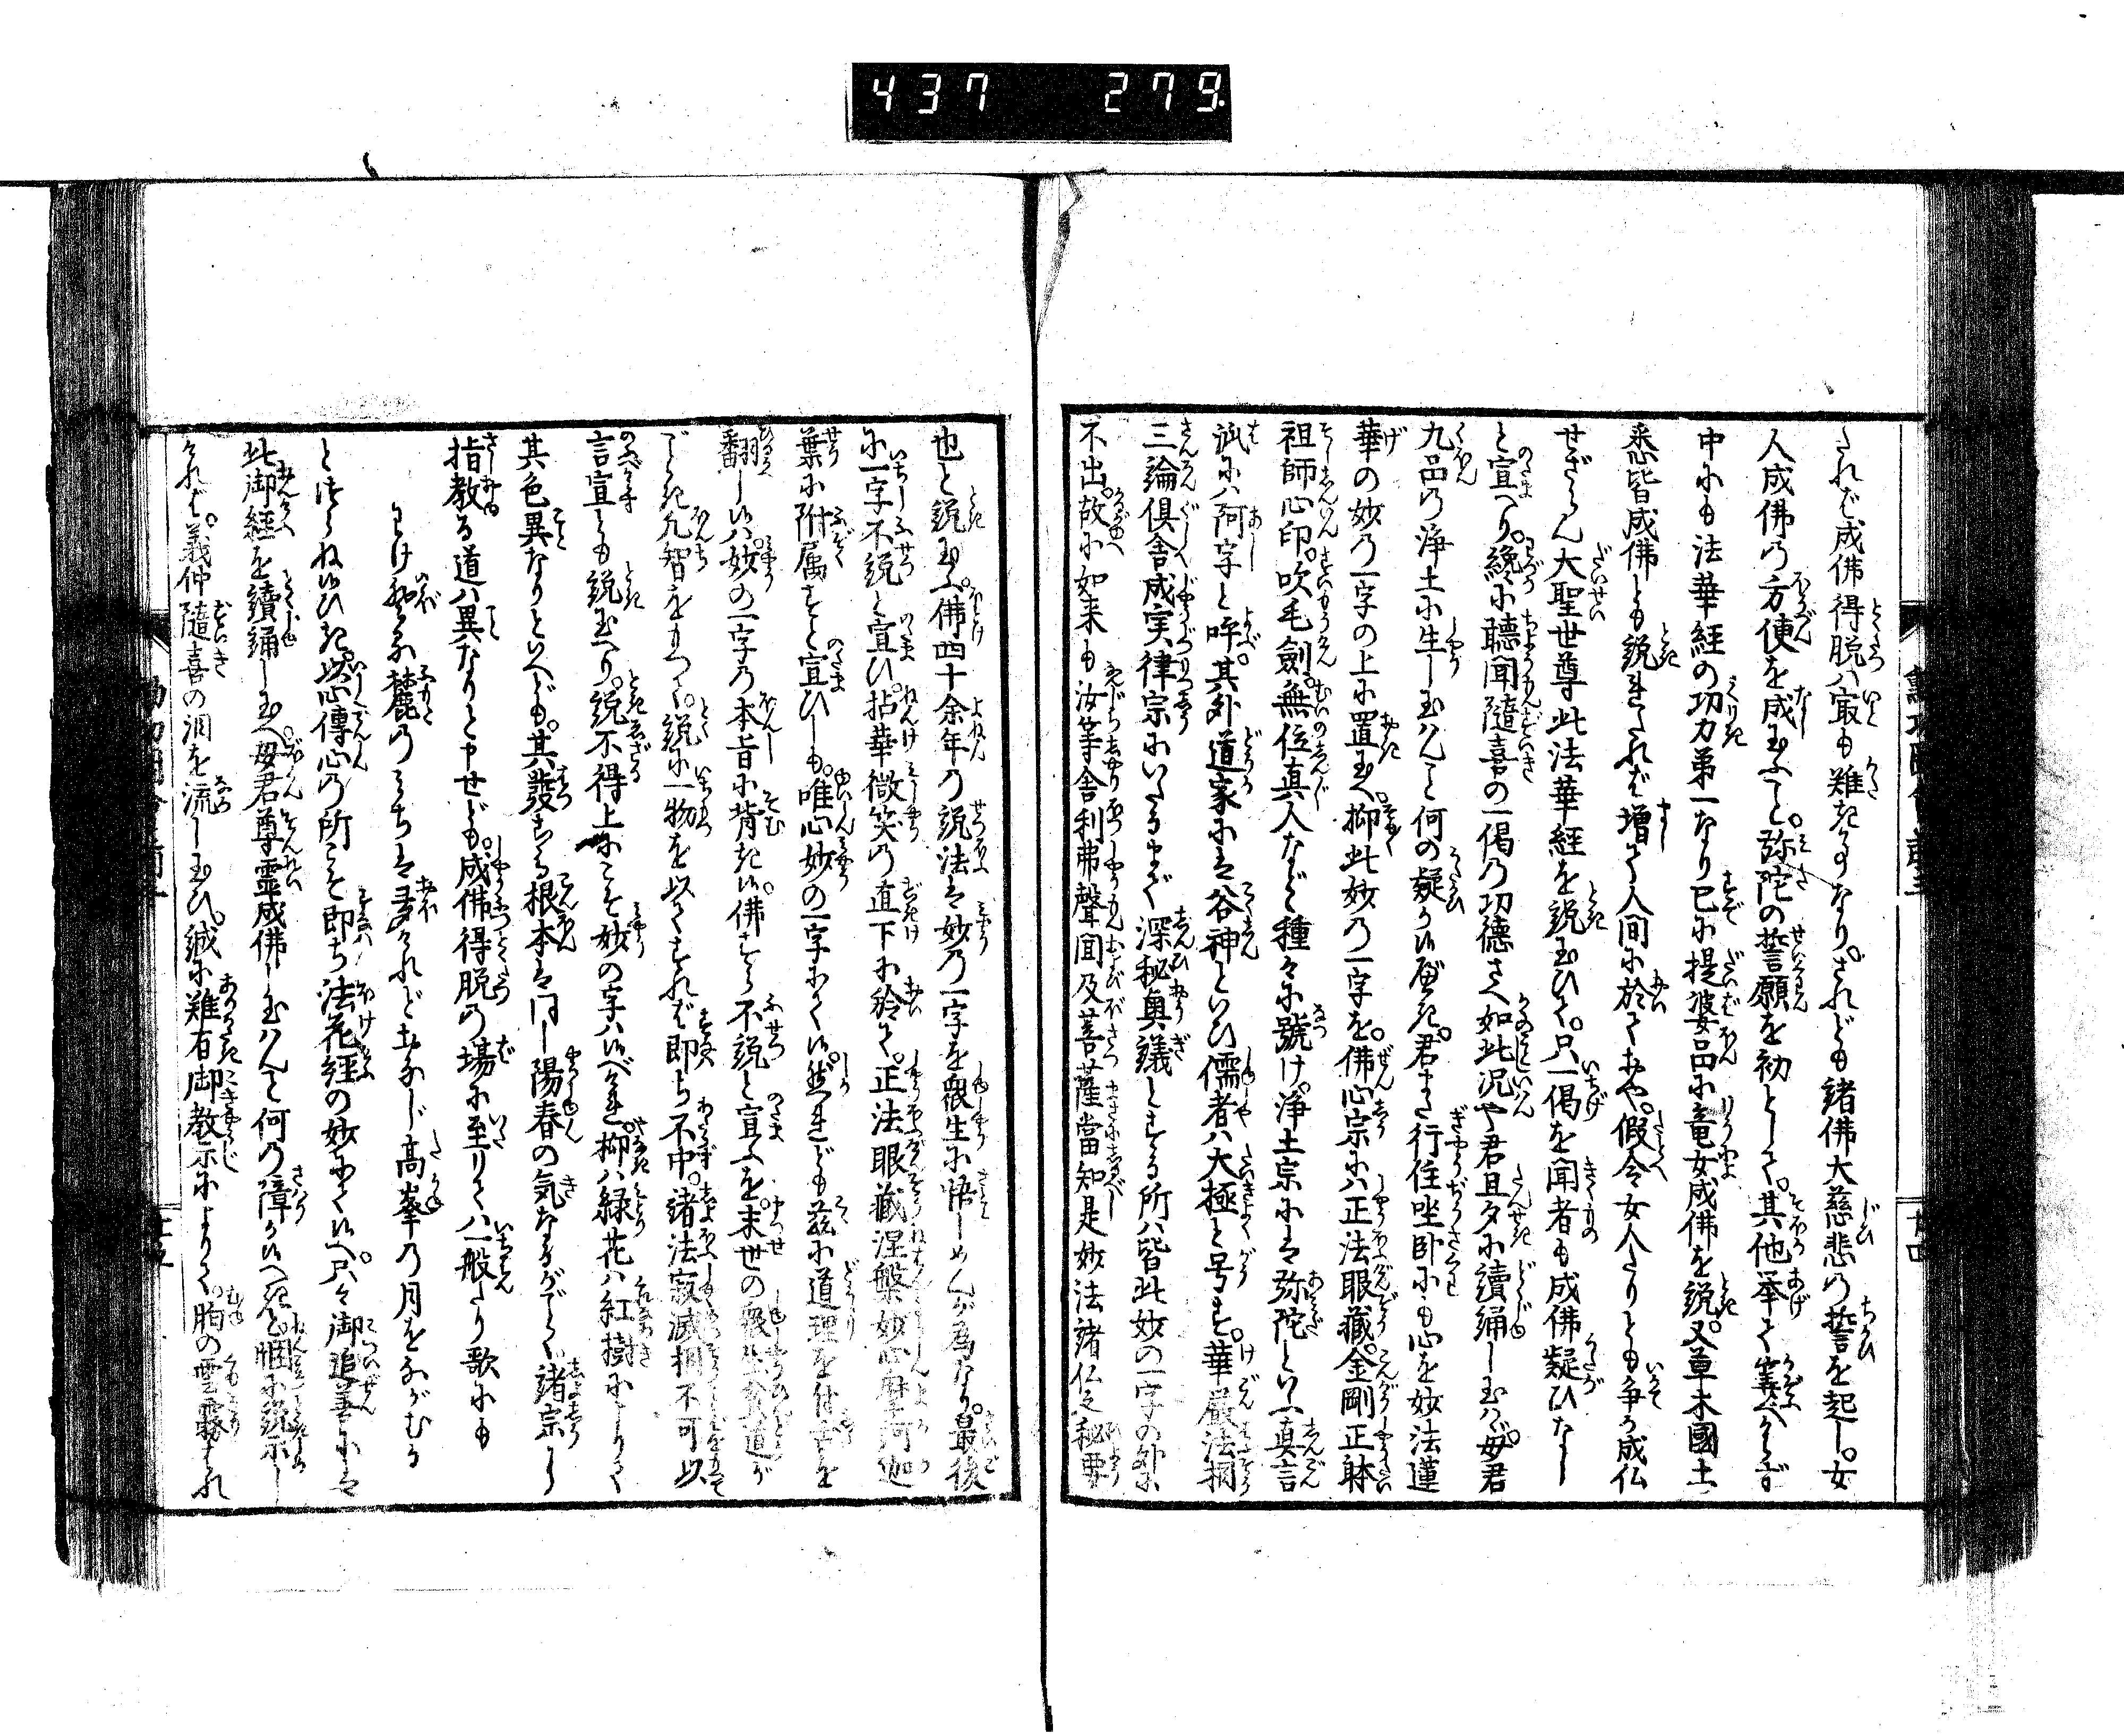 437 279.
されば成佛得脱ハ寂も難き事なり。されども諸佛大慈悲の誓を起し。女
人成佛の方便を成玉へと。弥陀の誓願を初として。其他挙て筭べからず
中にも法華経の功力第一なり已に提婆品に竜女成佛を説。又草木國土
悉皆成佛とも説玉されば増して人間に於ておや。假令女人たりとも争う成仏
せざらん大聖世尊此法華経を説玉ひて。只一偈を聞者も成佛疑ひなし
と宣へり。纔に聴聞隨喜の一偈の功德さへ如此況や君旦夕に讀誦し玉ハヾ。母君
九品の浄土に生し玉はんと何の疑う候べき。君また行住坐卧にも心を妙法蓮
華の妙の一字の上に置玉へ。抑此妙の一字を。佛心宗にハ正法眼蔵。金剛正躰
祖師心印。吹毛劔。無位真人などゝ種々に號け。浄土宗にハ弥陀といへ真言
瓬にハ阿字と呼。其外道家にハ谷神といひ儒者ハ大極と号す。華嚴法相
三論倶舎成実律宗にいたるまで深秘奥議とする所ハ皆此妙の一字の外に
不出。故に如来も汝等舎利弗聲聞及菩薩當知是妙法諸仏之秘要
也と説玉ふ。佛四十余年の説法は妙の一字を衆生に悟しめんが為なり。最後
に一字不説と宣ひ。拈華微笑の直下に於て。正法眼藏涅槃妙心摩訶迦
葉に附属すと宣ひしも。唯心妙の一字にて候。然れども茲に道理を付言を
翻し候ハ妙の一字の本旨に背き候。佛すら不説と宣ふを。末世の衆生貪道が
でき凡智をもつて。説に一物を以てすれば即ち不中。諸法寂滅相不可以
言宣とも説玉へり。説不得上にこそ妙の字ハ候べけれ。柳ハ緑花ハ紅樹によりて
其色異なりといへども。其發する根本は同し陽春の気なるがごとく諸宗し
指教る道ハ異なりと申せども。成佛得脱の場に至りてハ一般たり歌にも
わけ登る麓のみちは多けれど土おなじ高峯の月をながむる
とつらね候ひき。以心傳心の所こそ即ち法花経の妙にて候へ。只々御追善にハ
此御経を讀誦し玉へ母君尊霊成佛し玉はんと何の障り候べきと懇に説示し
ければ。義仲隨喜の涙を流し玉ひ。誠に難有御教示によりて。胸の雲霧はれ